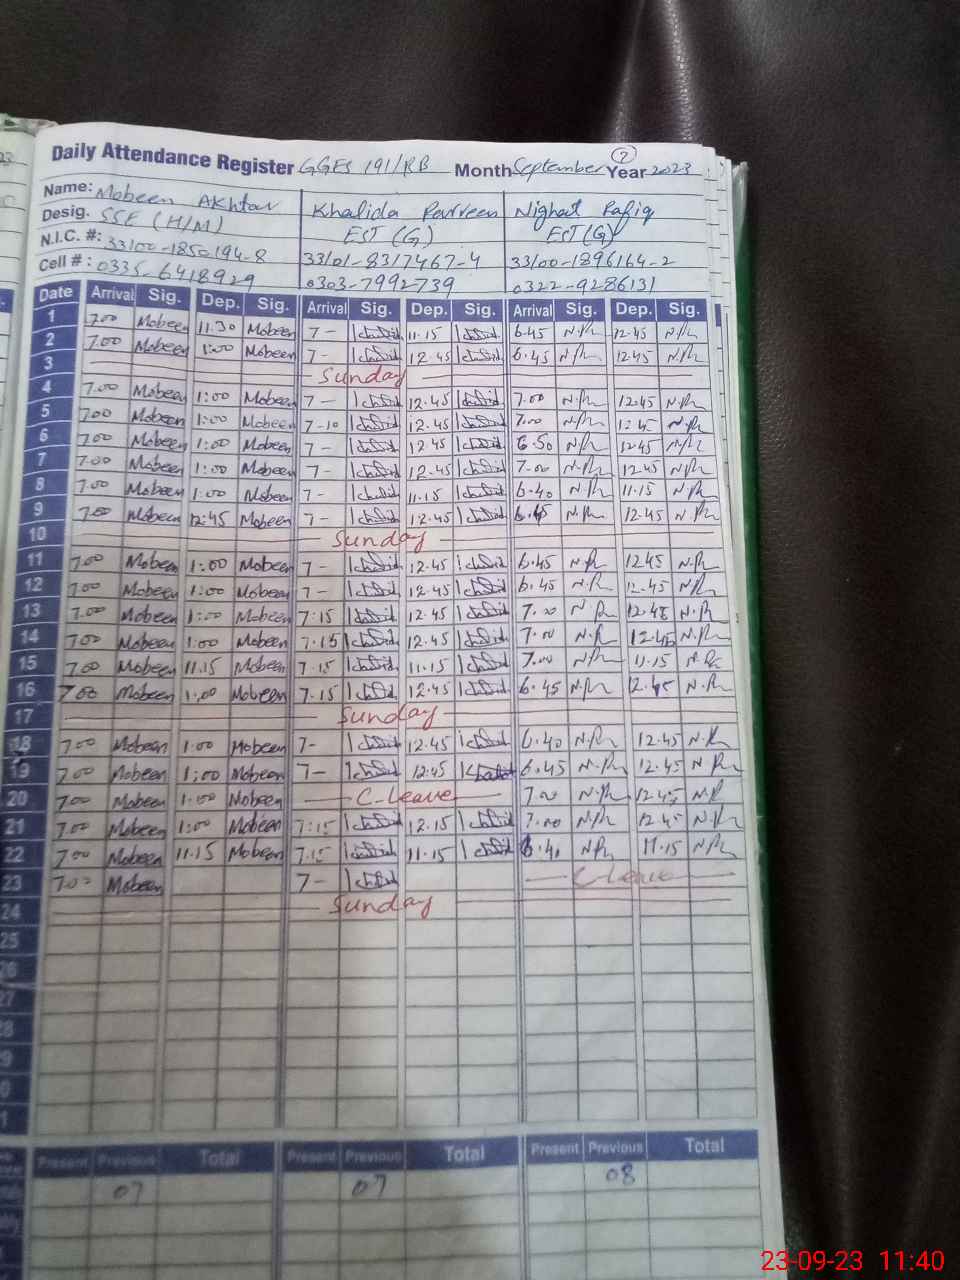 Daily Attendance Register GGES 191/RB Month September Year 2023
2
Name: Mobeen Akhtar Khalida Parveen Nighat Rafiq
Desig. SSE (H/M) EST (G) EST (G)
N.I.C. #: 33100-1850194-8 33101-8317467-4 33100-1896164-2
Cell #: 0335-6418929 0303-7992739 0322-9286131
Date Arrival Sig. Dep. Sig. Arrival Sig. Dep. Sig. Arrival Sig. Dep. Sig.
1 7.00 Mobeen 11.30 Mobeen 7- 11.15 6.45 12.45
2 7.00 Mobeen 1:00 Mobeen 7- 12.45 6.45 12.45
3 Sunday
4 7.00 Mobeen 1:00 Mobeen 7- 12.45 7.00 12.45
5 7.00 Mobeen 1:00 Mobeen 7-10 12.45 7.00
6 7.00 Mobeen 1:00 Mobeen 7- 12.45 6.50 12.45
7 7.00 Mobeen 1:00 Mobeen 7- 12.45 7.00 12.45
8 7.00 Mobeen 1:00 Mobeen 7- 11.15 6.40 11.15
9 7.00 Mobeen 12:45 Mobeen 7- 12.45 6.45 12.45
10 Sunday
11 7.00 Mobeen 1:00 Mobeen 7- 12.45 6.45 12.45
12 7.00 Mobeen 1:00 Mobeen 7- 12.45 6.45 12.45
13 7.00 Mobeen 1:00 Mobeen 7.15 12.45 7.00 12.45
14 7.00 Mobeen 1:00 Mobeen 7.15 12.45 7.00 12.45
15 7.00 Mobeen 11.15 Mobeen 7.15 11.15 7.00 11.15
16 7.00 Mobeen 1:00 Mobeen 7.15 12.45 6.45 12.45
17 Sunday
18 7.00 Mobeen 1:00 Mobeen 7- 12.45 6.40 12.45
19 7.00 Mobeen 1:00 Mobeen 7- 12.45 6.45 12.45
20 7.00 Mobeen 1:00 Mobeen C-Leave 7.00 12.45
21 7.00 Mobeen 1:00 Mobeen 7:15 12.15 7.00 12.45
22 7.00 Mobeen 11.15 Mobeen 7.15 11.15 6.40 11.15
23 7.00 Mobeen 7- C-Leave
24 Sunday
25
26
27
28
Present Previous Total Present Previous Total Present Previous Total
07 07 08
23-09-23 11:40